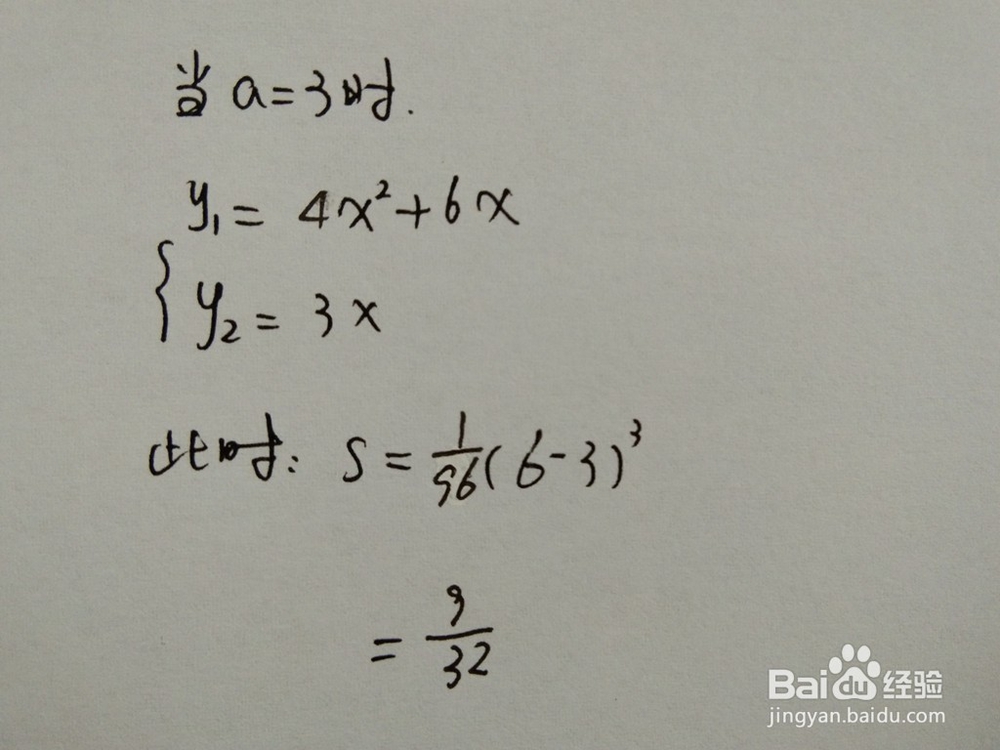 当 a=3时.
y₁ = 4x²+6x
y₂ = 3x
此时: S = 1/96 (6-3)³
= 9/32
Baidu 经验
jingyan.baidu.com